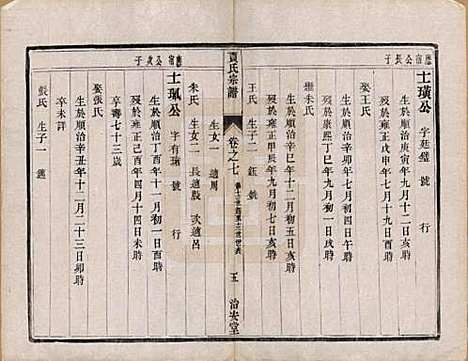 應宿公長子
士璜公 字廷璧 號 行
生於順治庚寅年九月初四日午時
歿於雍正戊申年九月十九日酉時
娶王氏
歿於康熙丁巳年九月初一日戌時
繼朱氏
生於順治辛巳年十二月初三日亥時
歿於雍正甲辰年九月初七日亥時
王氏 生子二 鈺
賁氏宗譜
卷之七
五 治安堂
生女一 適周
朱氏 生女二 長適殷 次適呂
應宿公次子
士珮公 字有瑞 號 行
生於順治丁酉年十二月初一日酉時
歿於雍正己酉年四月十四日未時
享壽七十三歲
娶張氏
生於順治辛丑年十二月二十三日卯時
卒未詳
張氏 生子一 鑑